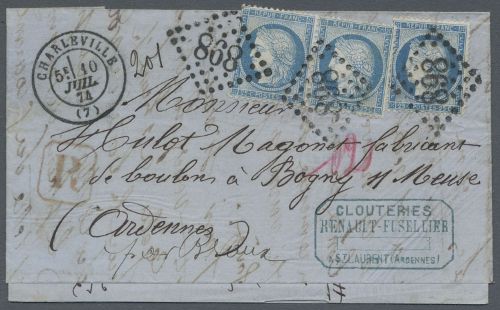 CHARLEVILLE
5E 10
JUIL.
74
(7)
201
868
868
868
REPUB. FRANC.
REPUB. FRANC.
REPUB. FRANC.
25 C. POSTES 25 C.
Monsieur
Hulot Magonet fabricant
de boulons à Bogny s/ Meuse
(Ardennes
par Braux
R
CLOUTERIES
RENAULT-FUSELLIER
A ST LAURENT (ARDENNES)